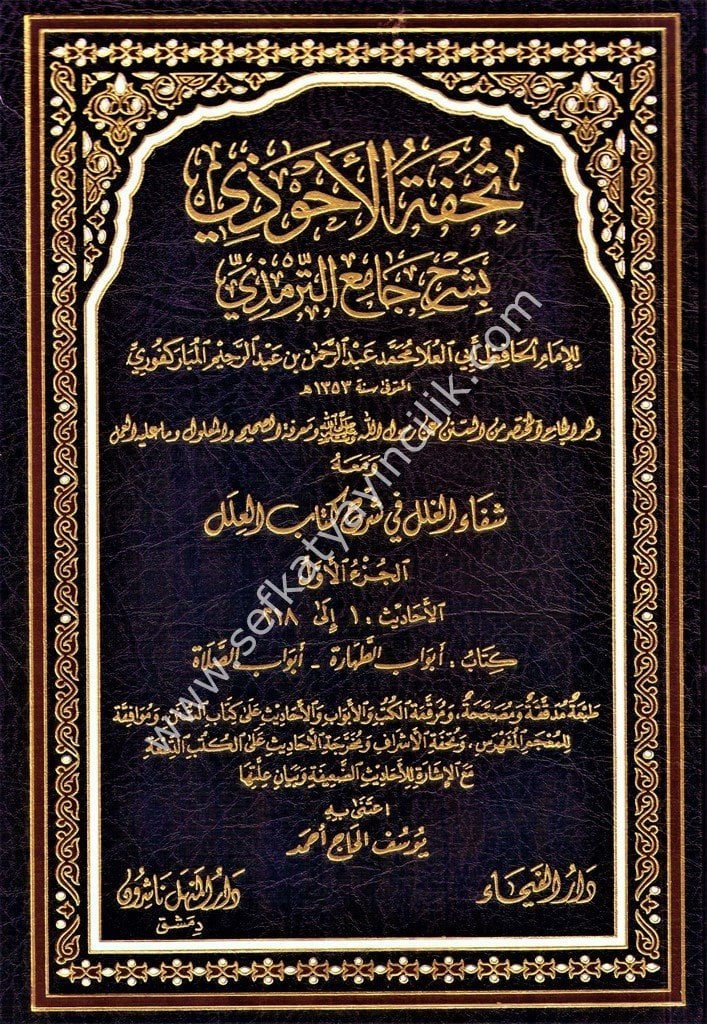 تُحْفَةُ الأَحْوَذِي
بِشَرْحِ جَامِعِ التِّرْمِذِيِّ
لِلإِمَامِ الحَافِظِ أَبِي العُلَا مُحَمَّد عَبْدِ الرَّحْمٰنِ بْنِ عَبْدِ الرَّحِيمِ المُبَارَكْفُورِي
المتوفى سنة ١٣٥٣ هـ
وهو الجامع المختصر من السنن عن رسول الله ﷺ ومعرفة الصحيح والمعلول وما عليه العمل
وَمَعَهُ
شفاء الغلل في شرح كتاب العِلَل
الجُزْءُ الأَوَّلُ
الأَحَادِيث : ١ إِلَى ٣١٨
كِتَابُ : أَبْوَابِ الطَّهَارَة - أَبْوَابِ الصَّلَاة
طَبْعَةٌ مُدَقَّقَةٌ وَمُصَحَّحَةٌ، وَمُرَقَّمَةُ الكُتُبِ وَالأَبْوَابِ وَالأَحَادِيثِ عَلَى كِتَابِ السُّنَنِ، وَمُوَافِقَة
لِلْمُعْجَمِ المُفَهْرَسِ، وَتُحْفَةِ الأَشْرَافِ وَمُخَرَّجَةُ الأَحَادِيثِ عَلَى الكُتُبِ التِّسْعَةِ
مَعَ الإِشَارَةِ لِلأَحَادِيثِ الضَّعِيفَةِ وَبَيَانِ عِلَّتِهَا
اعْتَنَى بِهِ
يُوسُف الحَاج أَحْمَد
دَارُ الفَيْحَاء
دَارُ المَنْهَل نَاشِرُون
دِمَشْق
www.sefkatyayincilik.com